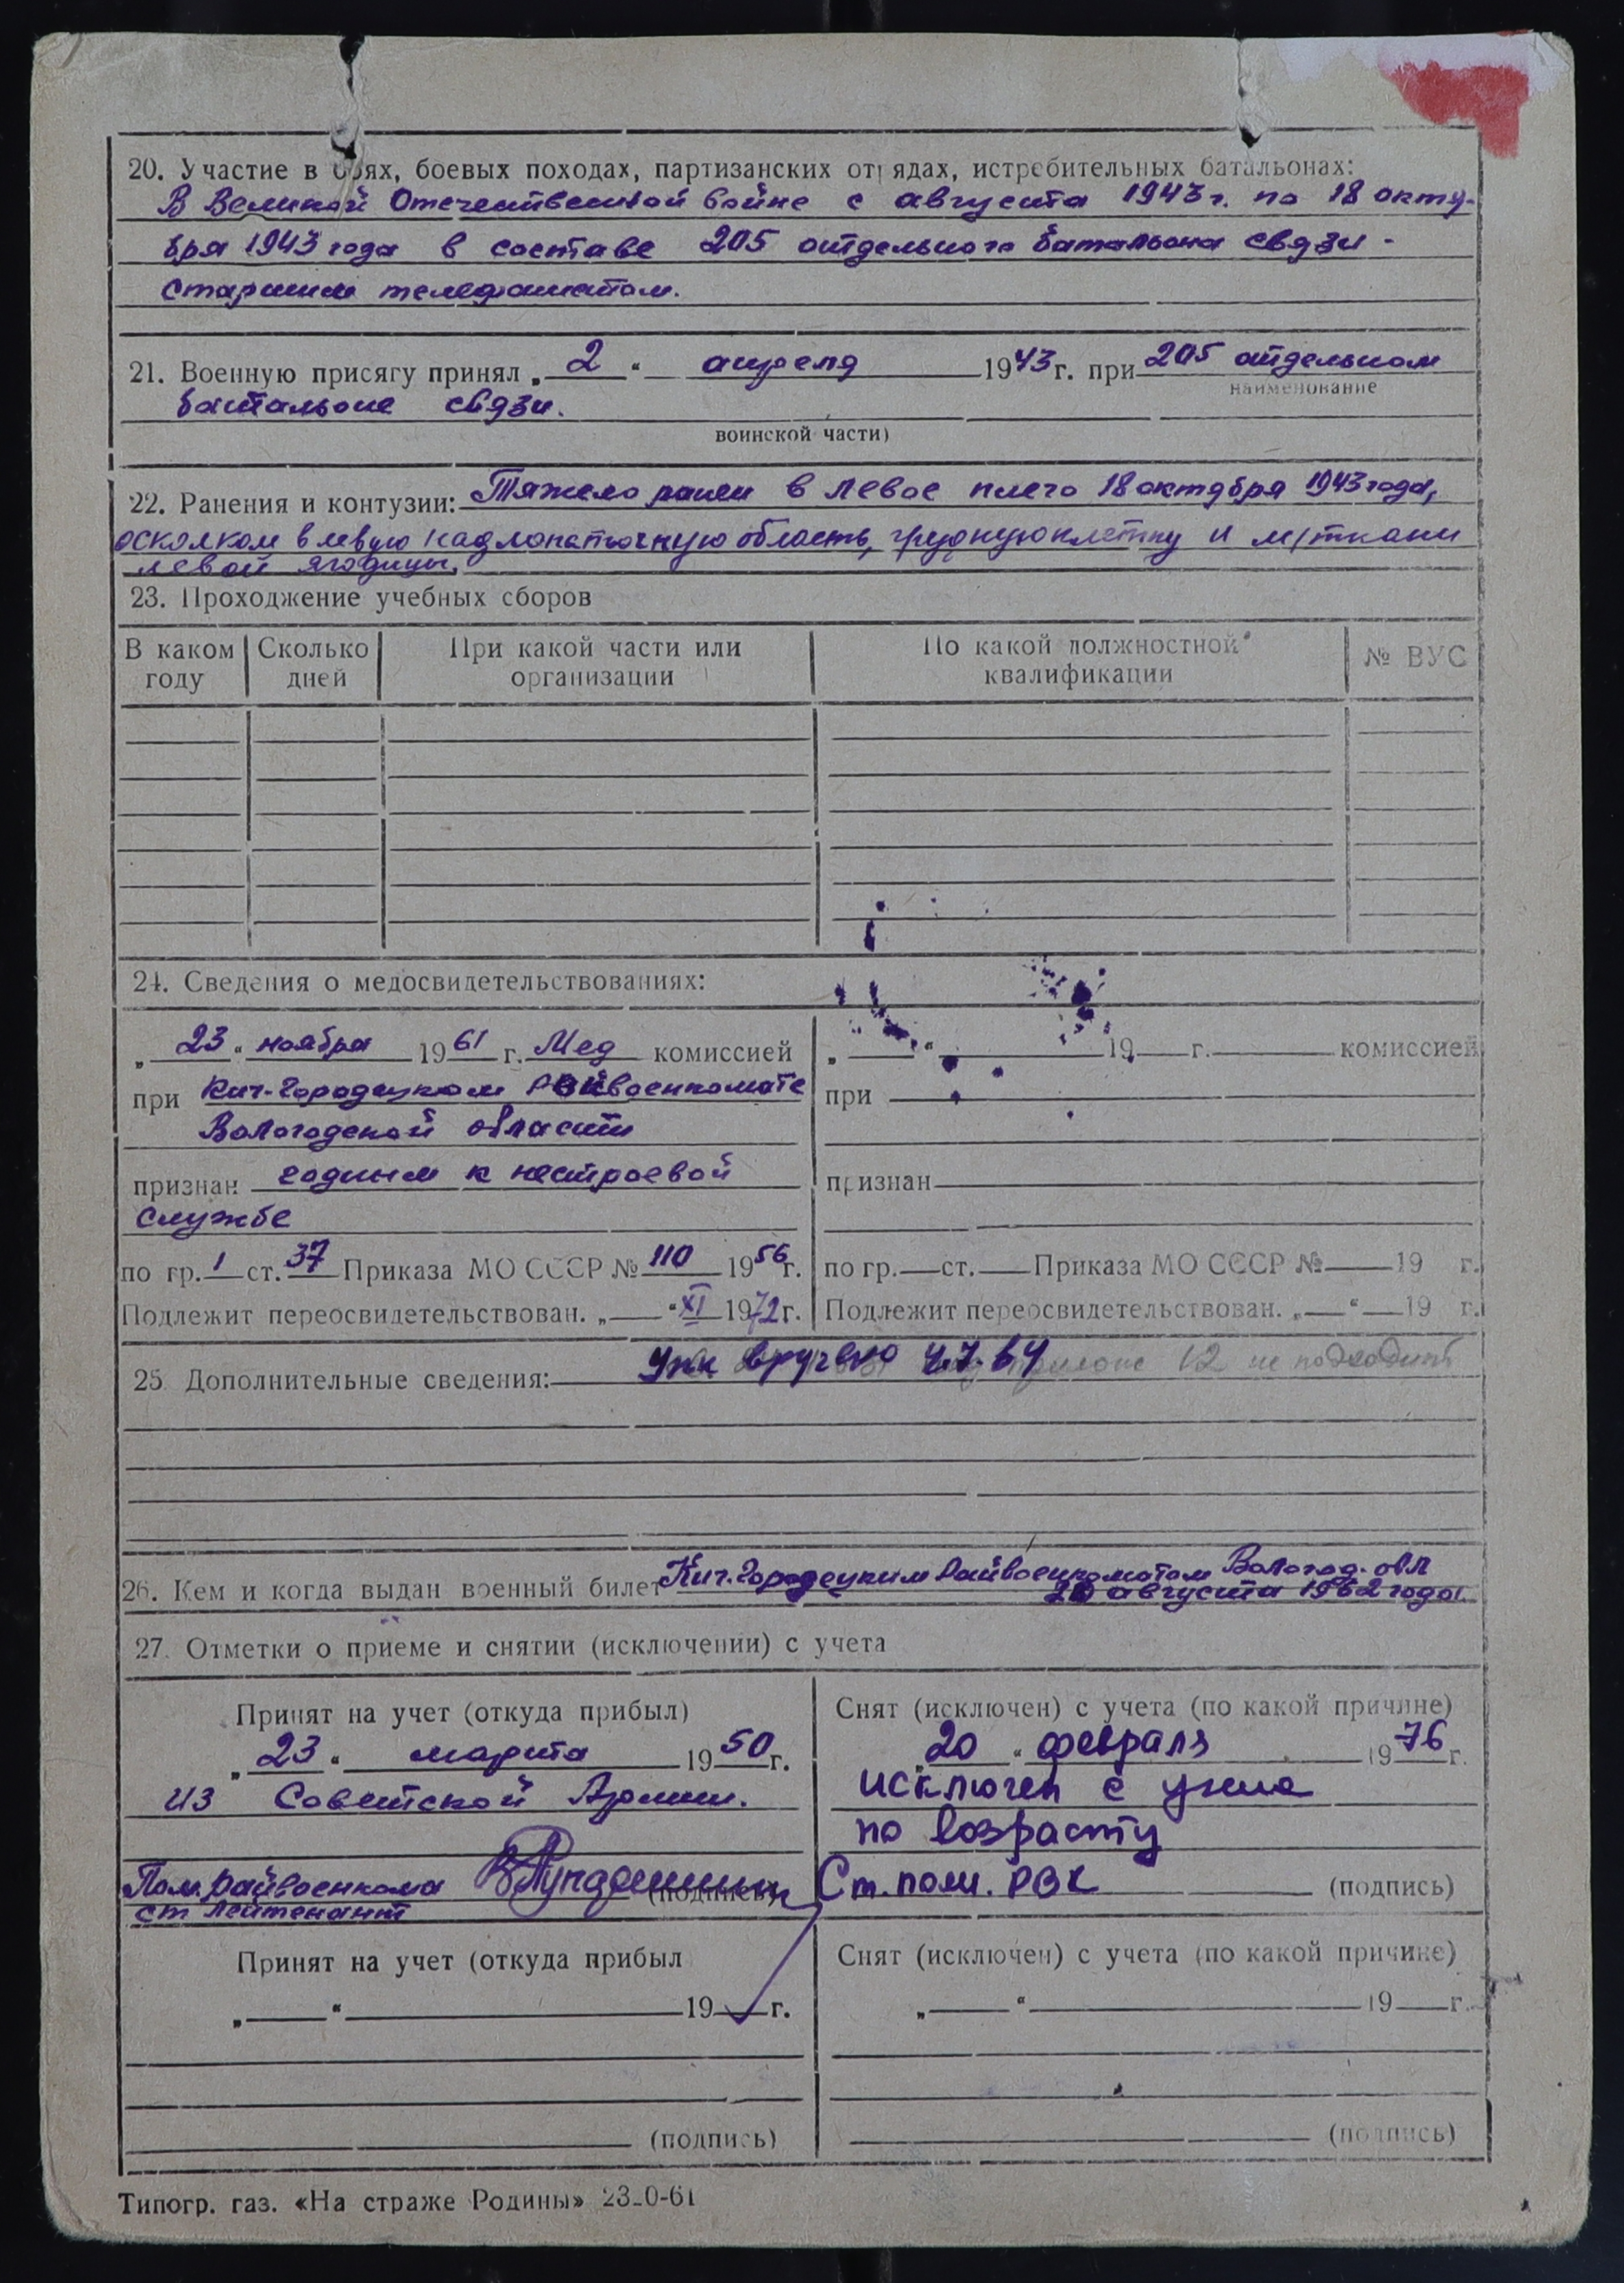 20. Участие в боях, боевых походах, партизанских отрядах, истребительных батальонах:
В Великой Отечественной войне с августа 1943 г. по 18 октя-
бря 1943 года в составе 205 отдельного батальона связи -
старшим телефонистом.
21. Военную присягу принял „2“ апреля 1943 г. при 205 отдельном
наименование
батальоне связи.
воинской части)
22. Ранения и контузии: Тяжело ранен в левое плечо 18 октября 1943 года,
осколком в левую надлопаточную область, грудную клетку и м/ткани
левой ягодицы.
23. Прохождение учебных сборов
В каком году Сколько дней При какой части или организации По какой должностной квалификации № ВУС
24. Сведения о медосвидетельствованиях:
„23“ ноября 1961 г. Мед комиссией
при Кич-Городецком Райвоенкомате
Вологодской области
признан годным к нестроевой
службе
по гр. 1 ст. 37 Приказа МО СССР № 110 1956 г.
Подлежит переосвидетельствован. „ “ XI 1972 г.
„ “ 19 г. комиссией
при
признан
по гр. ст. Приказа МО СССР № 19 г.
Подлежит переосвидетельствован. „ “ 19 г.
25. Дополнительные сведения: вручено 4.7.64 12 не подходит
26. Кем и когда выдан военный билет Кич.Городецким Райвоенкоматом Волог­од. обл
20 августа 1962 года.
27. Отметки о приеме и снятии (исключении) с учета
Принят на учет (откуда прибыл)
„23“ марта 1950 г.
из Советской Армии.
Пом. Райвоенкома (подпись)
ст лейтенант
Снят (исключен) с учета (по какой причине)
„20“ февраля 1976 г.
исключен с учета
по возрасту
Ст. пом. РВК (подпись)
Принят на учет (откуда прибыл
„ “ 19 г.
(подпись)
Снят (исключен) с учета (по какой причине)
„ “ 19 г.
(подпись)
Типогр. газ. «На страже Родины» 23_0-61